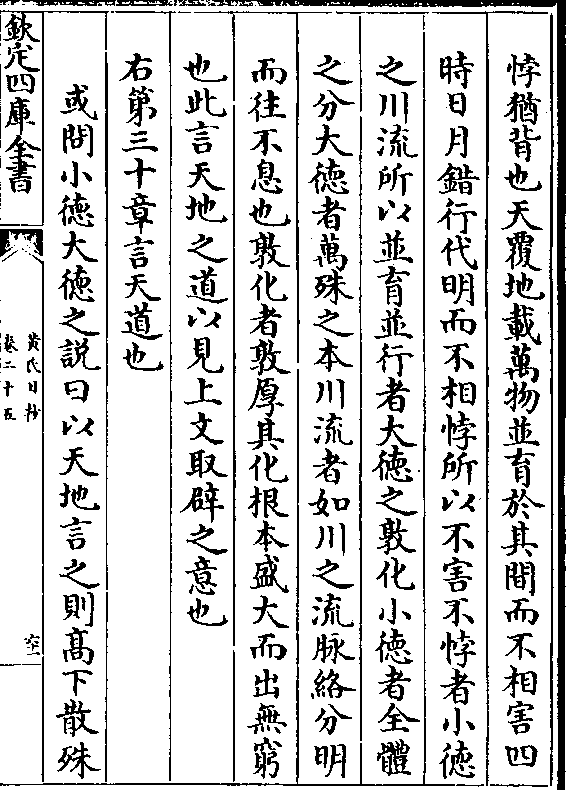 悖猶背也天覆地載萬物並育於其間而不相害四
時日月錯行代明而不相悖所以不害不悖者小德
之川流所以並育並行者大德之敦化小德者全體
之分大德者萬殊之本川流者如川之流脉絡分明
而往不息也敦化者敦厚其化根本盛大而出無窮
也此言天地之道以見上文取辟之意也
右第三十章言天道也
或問小德大德之説曰以天地言之則髙下散殊
欽定四庫全書
黄氏日抄
卷二十五